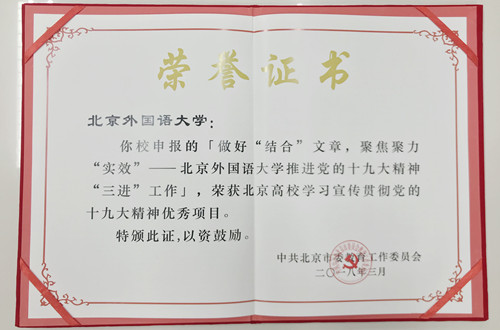 荣誉证书
北京外国语大学：
你校申报的「做好“结合”文章，聚焦聚力
“实效”——北京外国语大学推进党的十九大精神
“三进”工作」，荣获北京高校学习宣传贯彻党的
十九大精神优秀项目。
特颁此证，以资鼓励。
中共北京市委教育工作委员会
二〇一八年三月